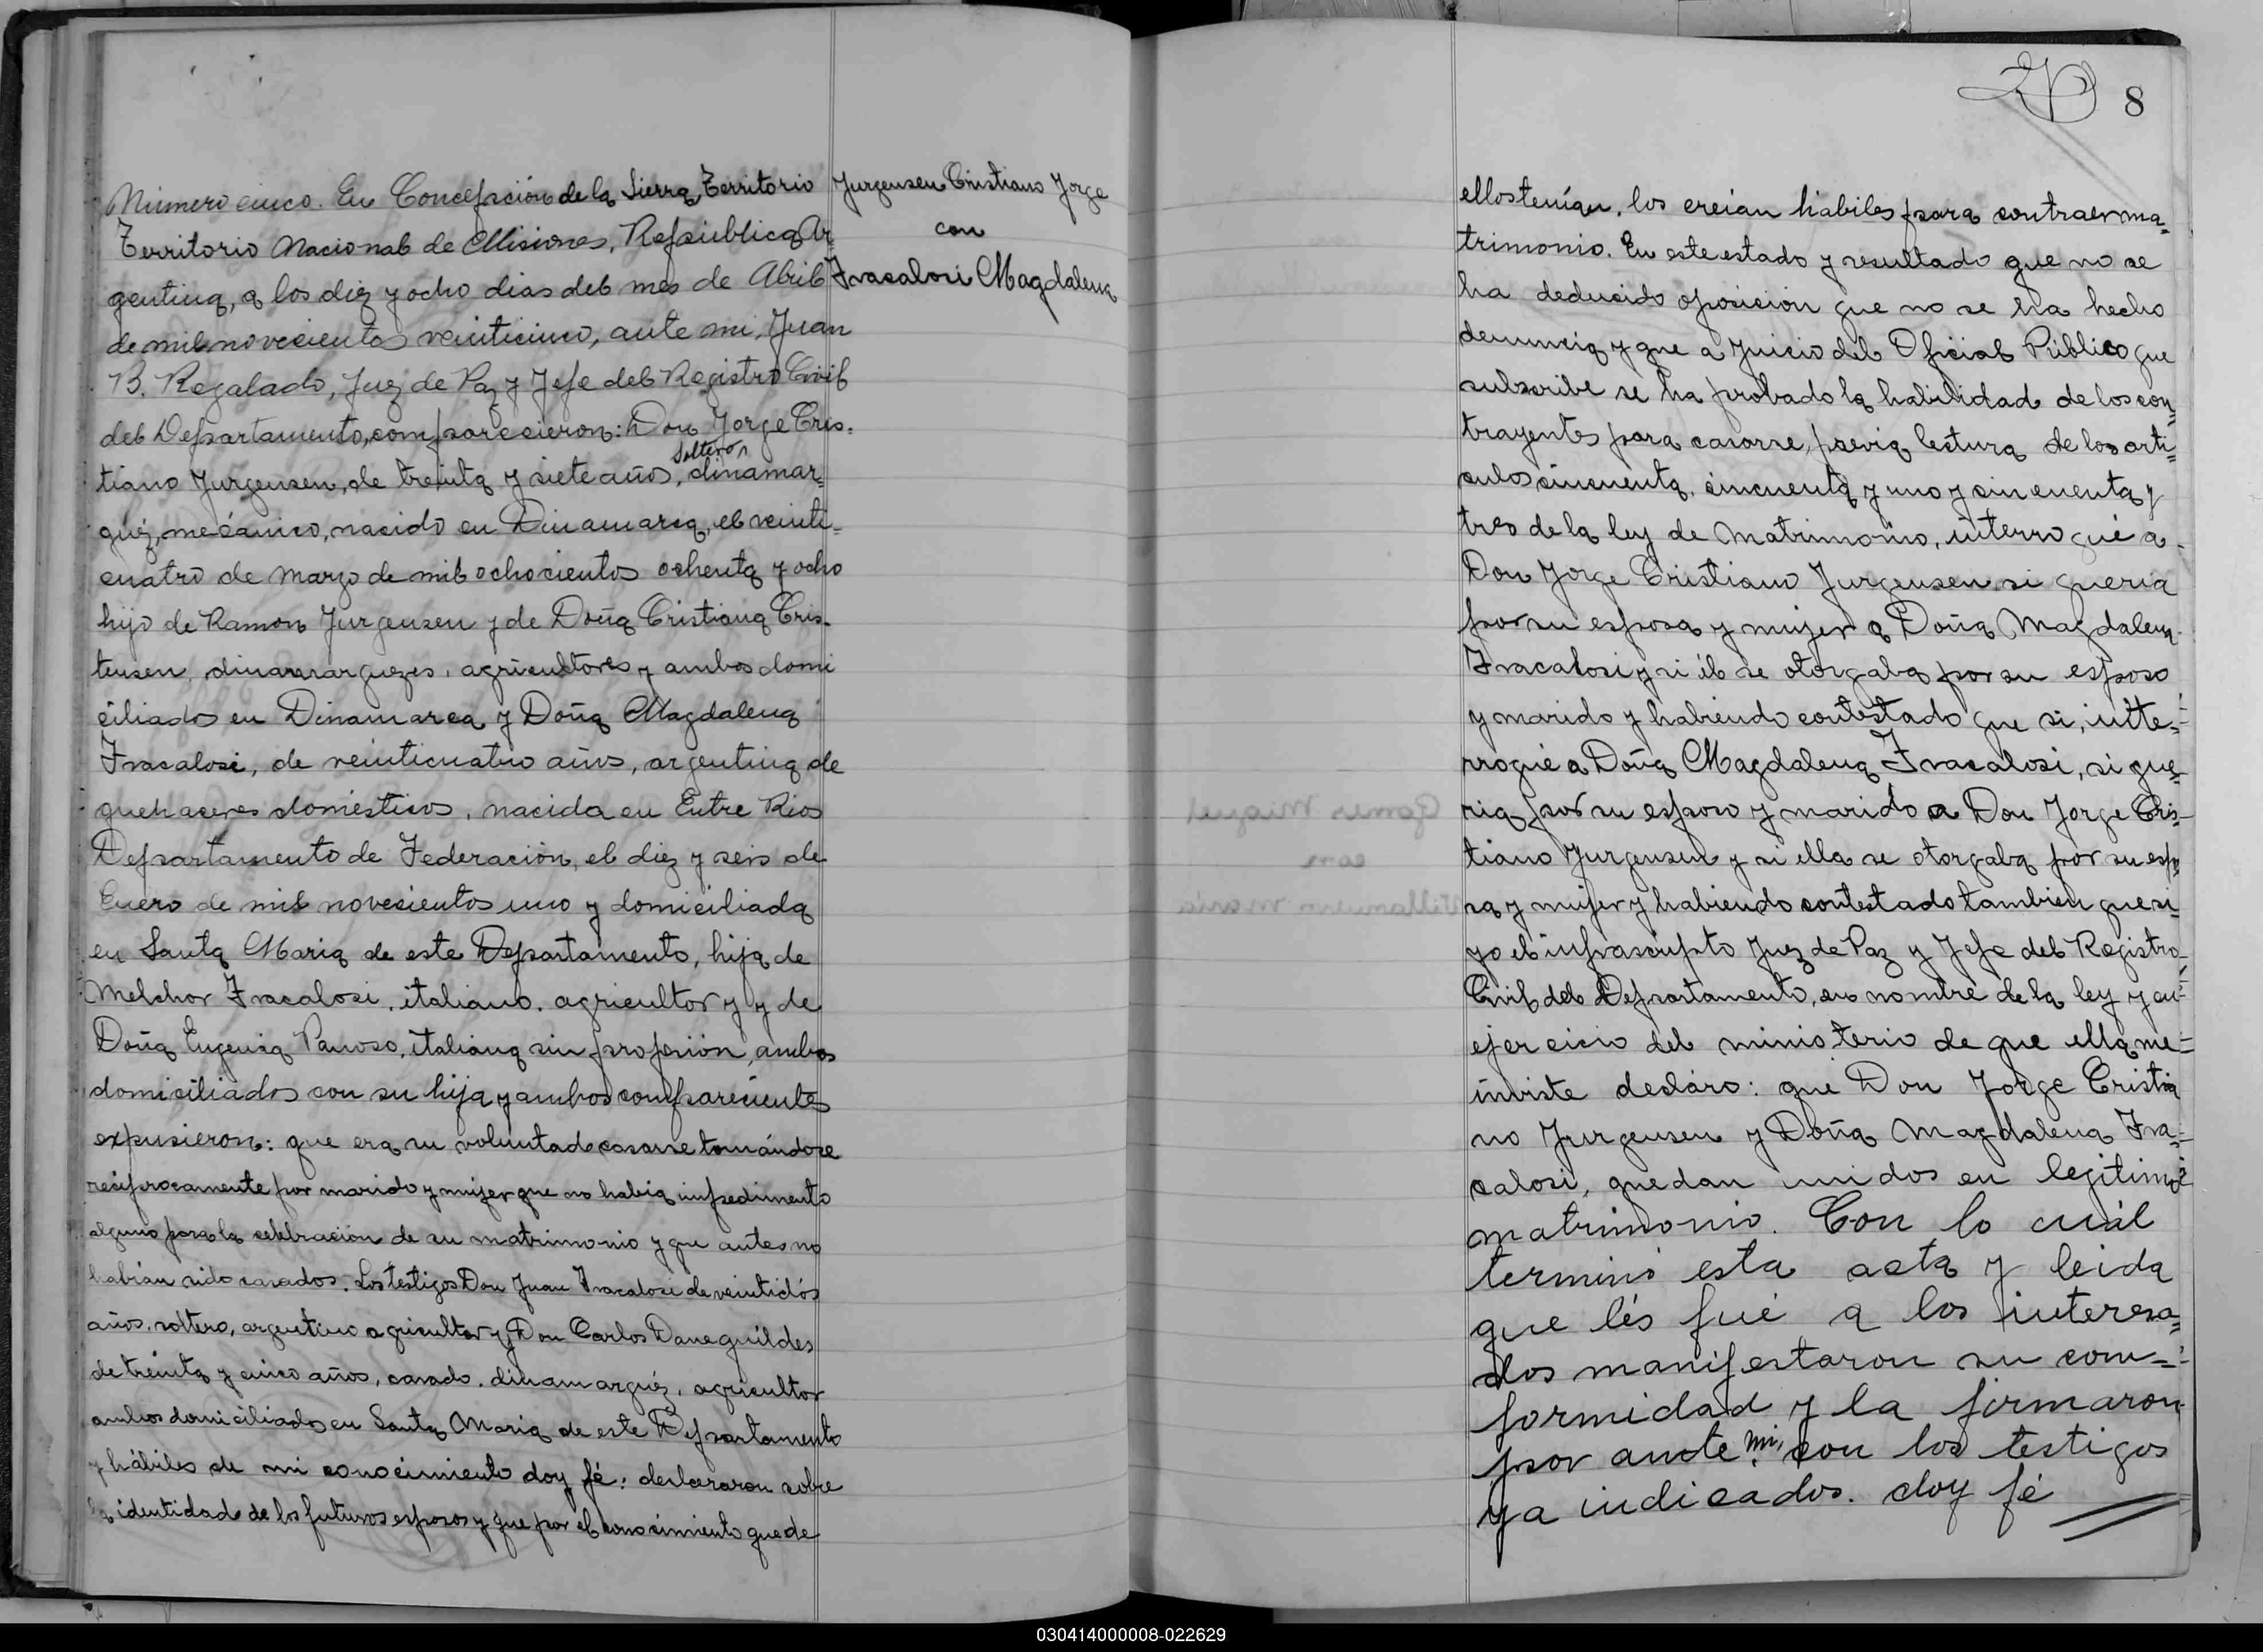 Número cinco. En Concepción de la Sierra, Territorio
Territorio Nacional de Misiones, República Ar
gentina, a los diez y ocho dias del mes de Abril
de mil novecientos veinticinco, ante mi, Juan
B. Regalado, Juez de Paz y Jefe del Registro Civil
del Departamento, comparecieron: Don Jorge Cris-
soltero
tiano Jurgensen, de treinta y siete años, dinamar=
quéz, mecánico, nacido en Dinamarca, el veinti=
cuatro de Marzo de mil ochocientos ochenta y ocho
hijo de Ramon Jurgensen y de Doña Cristiana Cris-
tensen, dinamarquezes, agricultores y ambos domi
ciliados en Dinamarca y Doña Magdalena
Fracalosi, de veinticuatro años, argentina de
quehaceres domésticos, nacida en Entre Rios
Departamento de Federación, el diez y seis de
Enero de mil novecientos uno y domiciliada
en Santa Maria de este Departamento, hija de
Melchor Fracalosi, italiano, agricultor y y de
Doña Eugenia Panoso, italiana sin profesión, ambos
domiciliados con su hija y ambos comparecientes
expusieron: que era su voluntad casarse tomándose
reciprocamente por marido y mujer que no habia impedimento
alguno para la celebracion de su matrimonio y que antes no
habian sido casados. Los testigos Don Juan Fracalosi de veintidós
años, soltero, argentino agricultor y Don Carlos Daneguildes
de treinta y cinco años, casado, dinamarquéz, agricultor
ambos domiciliados en Santa Maria de este Departamento
y hábiles de mi conocimiento doy fé: declararon sobre
la identidad de los futuros esposos y que por el conocimiento que de
Jurgensen Cristiano Jorge
con
Fracalosi Magdalena
8
ellos tenian, los creian hábiles para contraer ma-
trimonio. En este estado y resultado que no se
ha deducido oposición que no se ha hecho
denuncia y que a juicio del Oficial Público que
subscribe se ha probado la habilidad de los con=
trayentes para casarse, previa lectura de los arti=
culos cincuenta, cincuenta y uno y cincuenta y
tres de la ley de Matrimonio, interrogué a
Don Jorge Cristiano Jurgensen si queria
por su esposa y mujer a Doña Magdalena
Fracalosi y si él se otorgaba por su esposo
y marido y habiendo contestado que si, inte=
rrogué a Doña Magdalena Fracalosi, si que=
ria por su esposo y marido a Don Jorge Cris-
tiano Jurgensen y si ella se otorgaba por su espo
sa y mujer y habiendo contestado tambien que si
yo el infrascripto Juez de Paz y Jefe del Registro
Civil del Departamento, en nombre de la ley y en
ejercicio del ministerio de que ella me=
inviste decláro: que Don Jorge Cristia
no Jurgensen y Doña Magdalena Fra=
calosi, quedan unidos en legitimo
matrimonio. Con lo cuál
terminó esta acta y leida
que lés fué a los interesa=
dos manifestaron su con=
formidad y la firmaron
por ante mi, con los testigos
ya indicados. doy fé
Gomes Miguel
con
Villanueva Maria
030414000008-022629